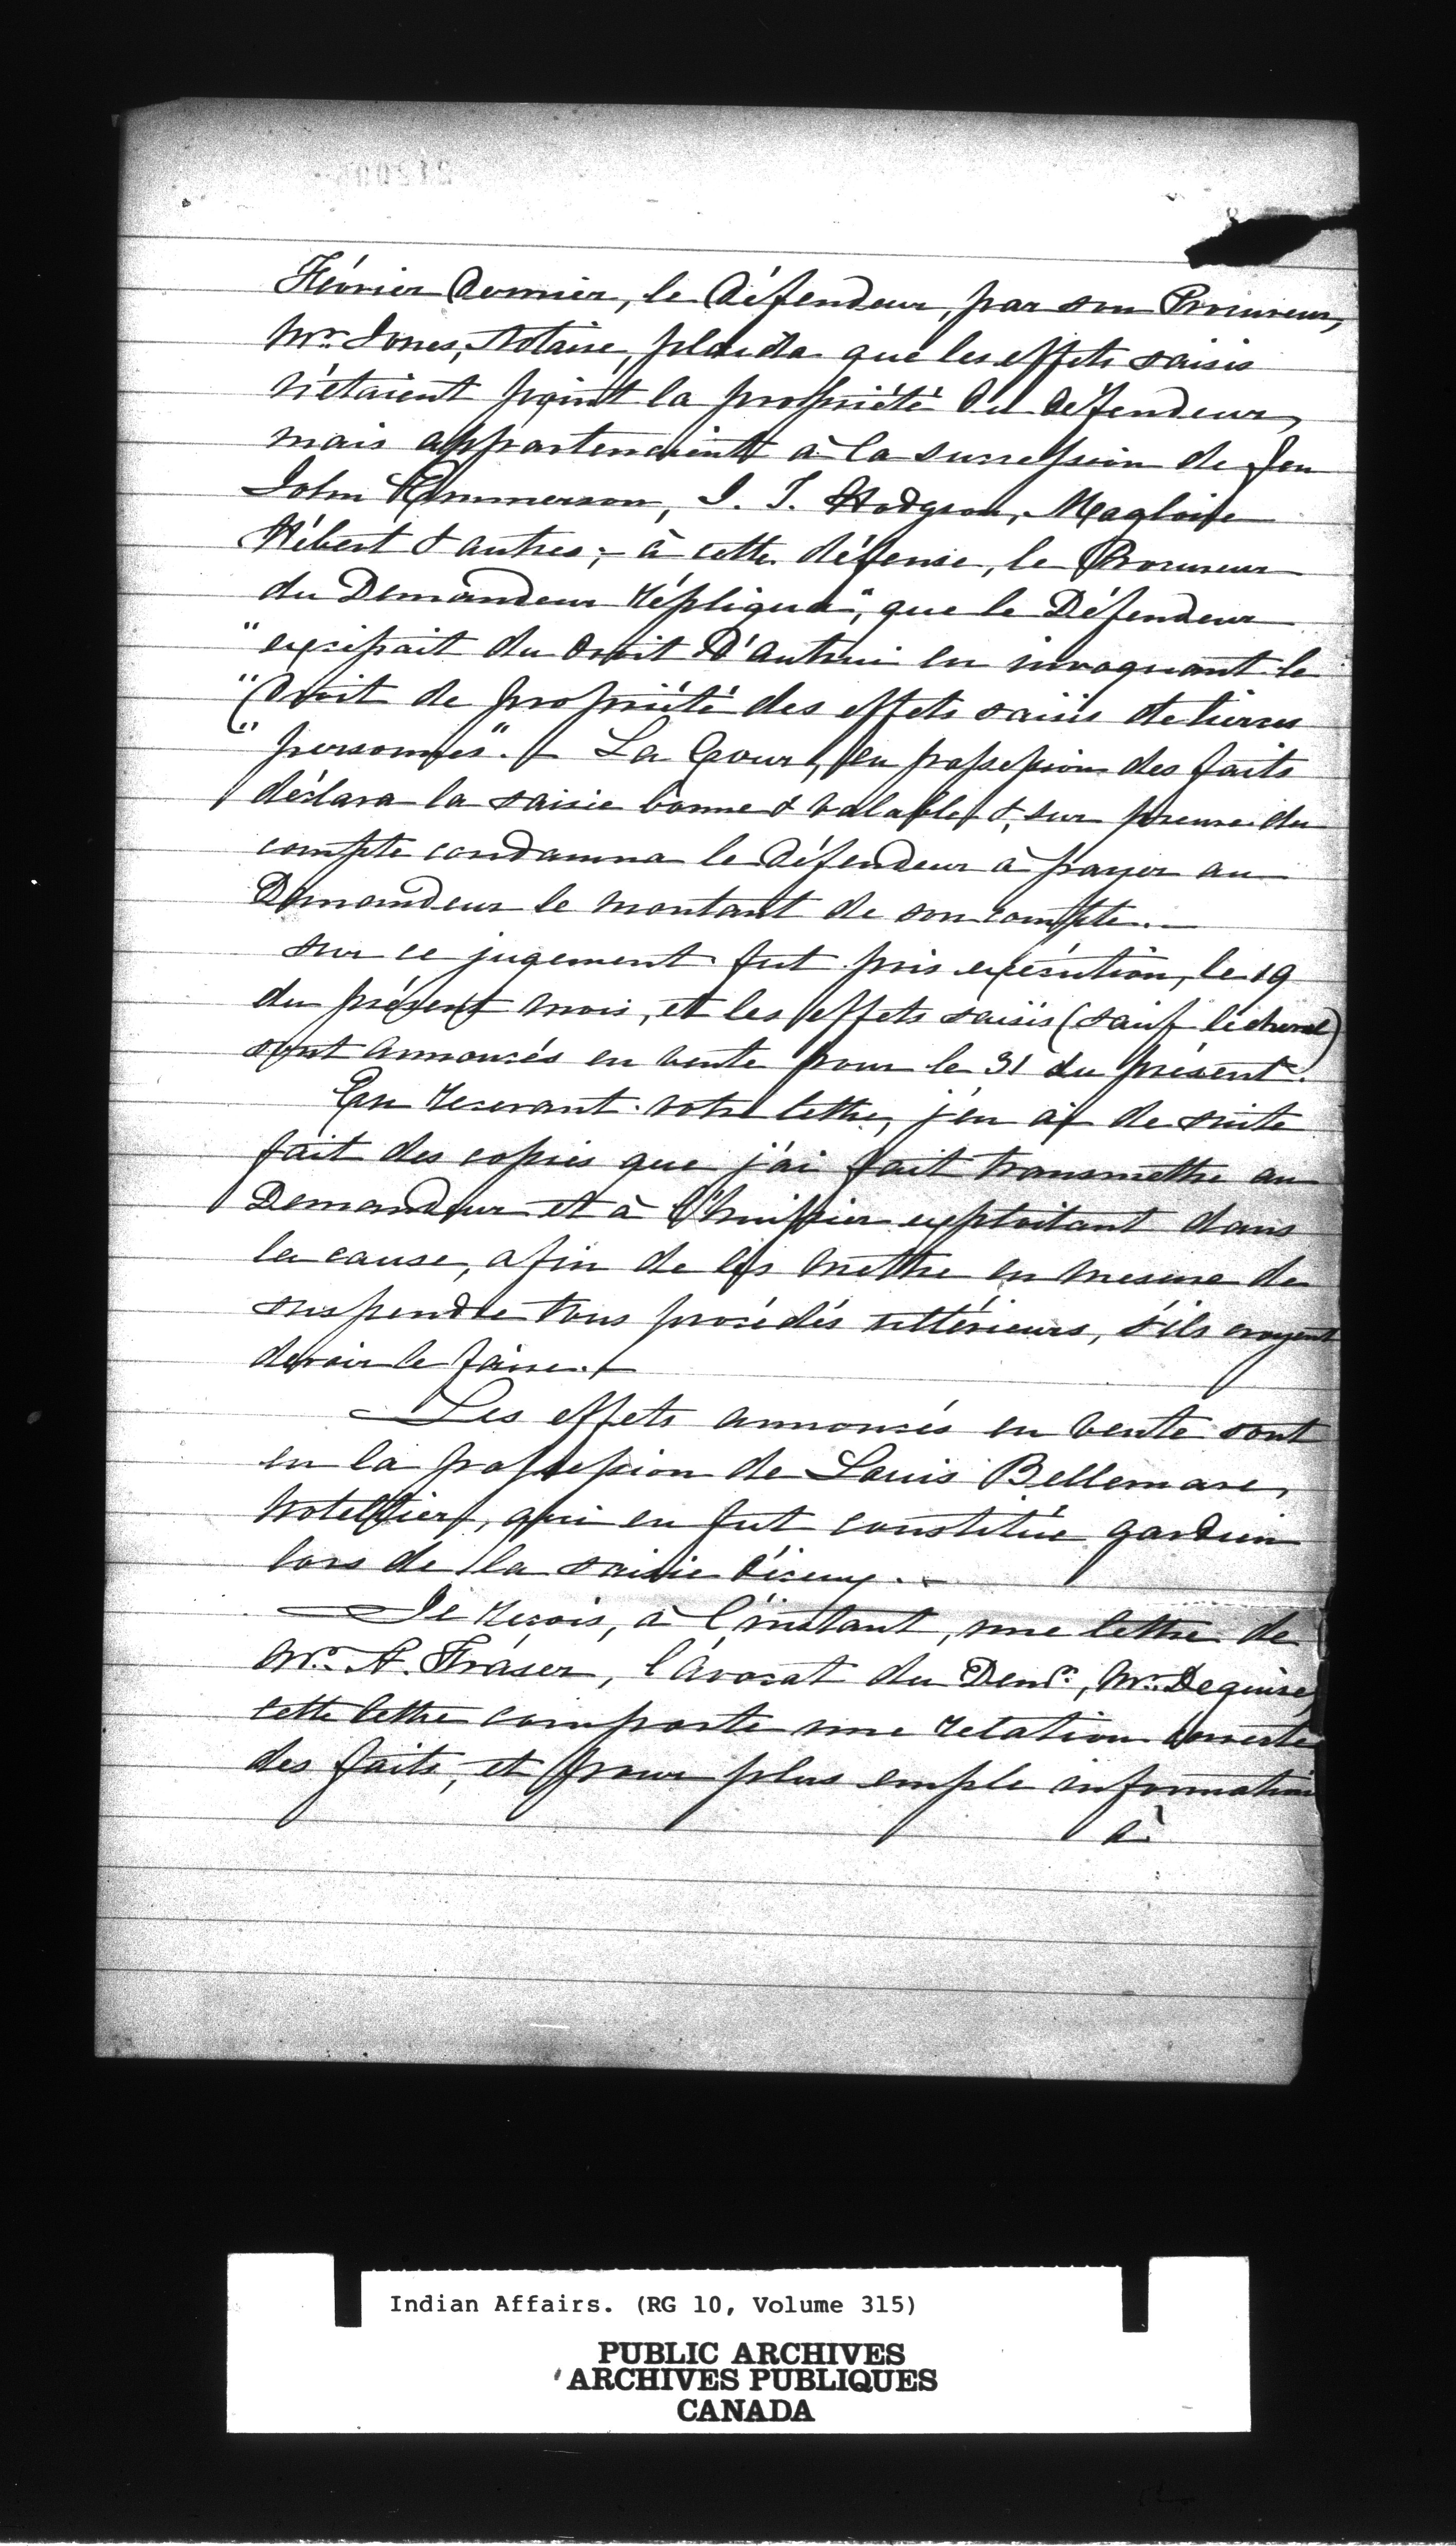 Février dernier, le Défendeur, par son Procureur,
Mr. Jones, Notaire, plaida que les effets saisis
n'étaient point la propriété du défendeur,
mais appartenaient à la succession de feu
John Hemmerson, J. J. Hodgson, Magloire
Hébert & autres; - à cette défense, le Procureur
du Demandeur répliqua, "que le Défendeur
"excipait du droit d'autrui en invoquant le
"droit de propriété des effets saisis de tierces
"personnes". - La Cour, en possession des faits
déclara la saisie bonne & valable & sur preuve du
compte condamna le Défendeur à payer au
Demandeur le montant de son compte. -
sur ce jugement fut pris exécution, le 19
du présent mois, et les effets saisis (sauf le cheval)
sont annoncés en vente pour le 31 du présent.
En recevant votre lettre, j'en ai de suite
fait des copies que j'ai fait transmettre au
Demandeur et à l'huissier exploitant dans
la cause, afin de les mettre en mesure de
suspendre tous procédés ultérieurs, s'ils croyent
devoir le faire. -
Les effets annoncés en vente sont
en la possession de Louis Bellemare,
hotellier, qui en fut constitué gardien
lors de la saisie d'iceux. -
Je reçois, à l'instant, une lettre de
Mr. A. Fraser, l'avocat du Demr., Mr. Deguise,
cette lettre comporte une relation correcte
des faits, et pour plus emple information
à
Indian Affairs. (RG 10, Volume 315)
PUBLIC ARCHIVES
ARCHIVES PUBLIQUES
CANADA